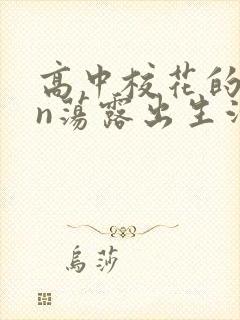 高中校花的
n荡露出生活
乌莎